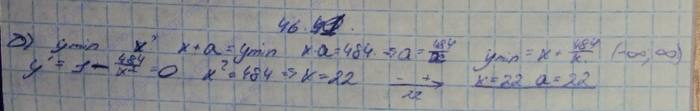 46.
δ) ymin x? x+a=ymin x·a=484 ⇒ a=484/x ymin=x+484/x (-∞,∞)
y'=1-484/x²=0 x²=484 ⇒ x=22 - + 22 x=22 a=22